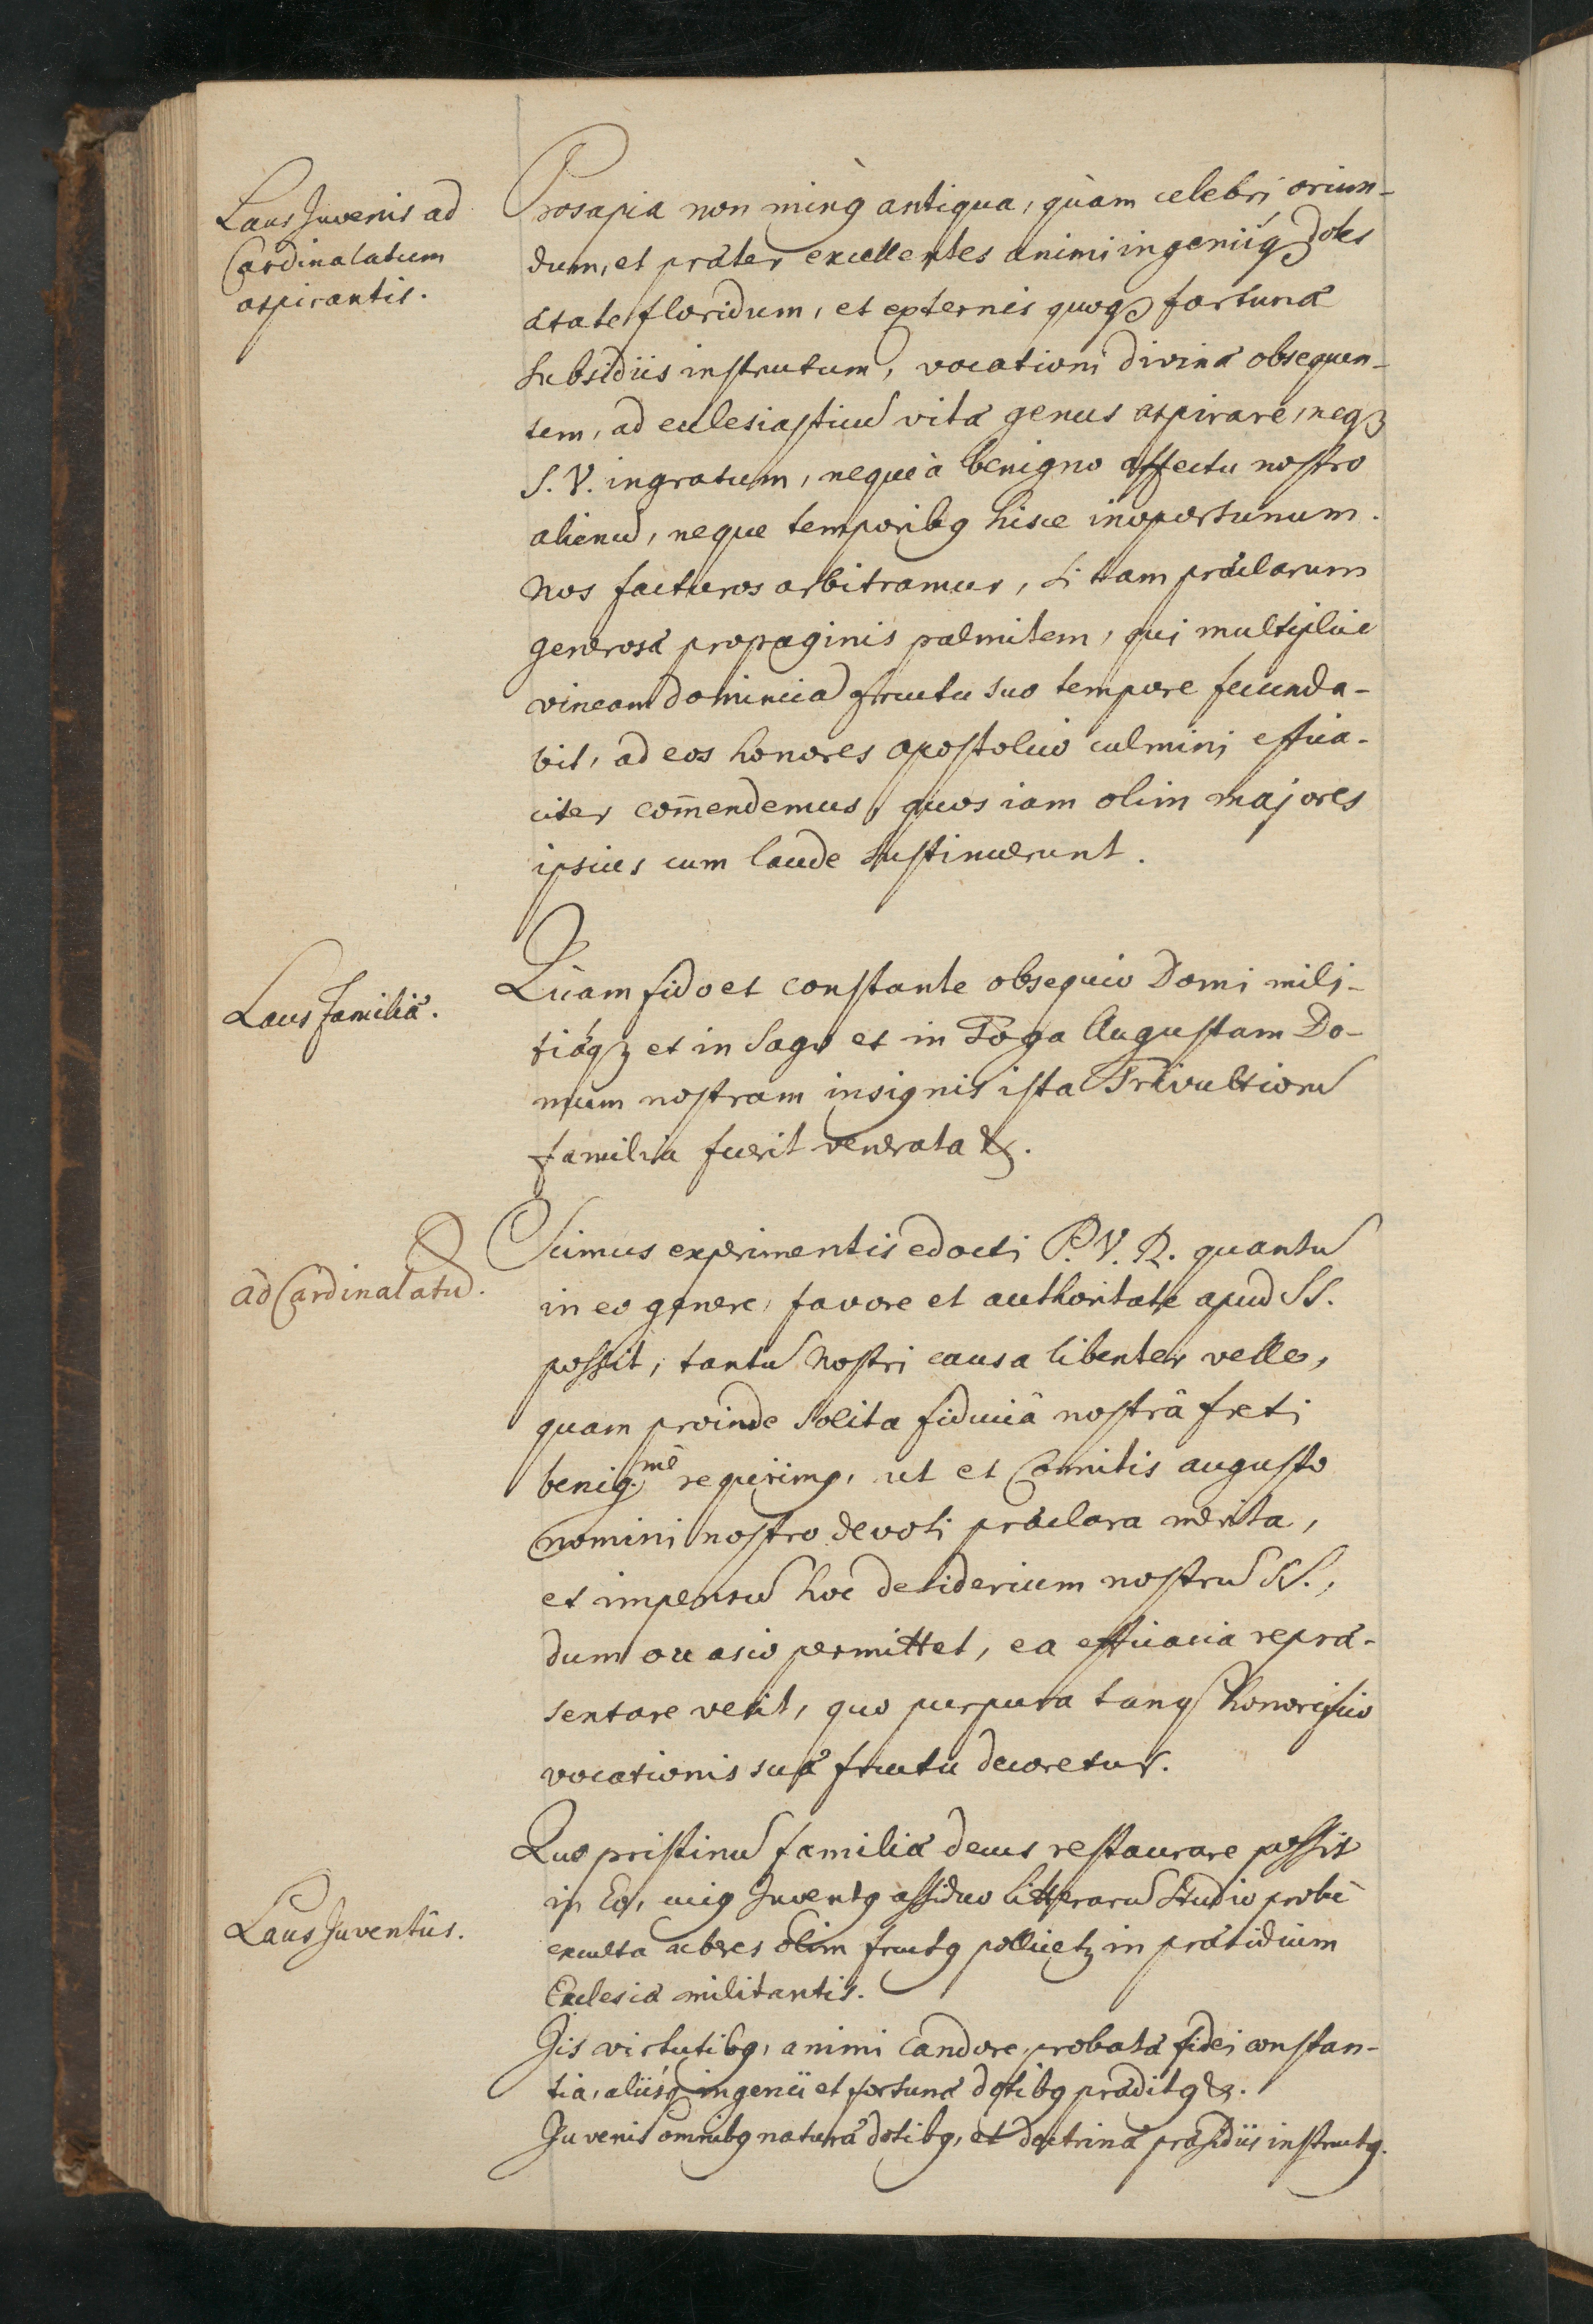 Laus Juvenis ad
Cardinalatum
aspirantis.
Prosapia non minq antiqua, quàm celebri oriun-
dum, et præter excellentes animi ingeniiq dotes
ætate floridum, et externis quoq fortunæ
subsidiis instructum, vocationi divinæ obsequen-
tem, ad ecclesiasticū vitæ genus aspirare, neq
S. V. ingratum, neque à benigno affectu nostro
alienū, neque temporibq hisce inoportunum.
Nos facturos arbitramur, si tam præclarum
generosæ propaginis palmitem, qui multiplici
vineam dominicā fructu suo tempore fecunda-
bit, ad eos honores apostolico culmini effica-
citer com̄endemus, quos iam olim majores
ipsius cum laude sustinuerunt.
Laus familiæ.
Quam fido et constante obsequio Domi mili-
tiæq et in Sago et in Toga Augustam Do-
mum nostram insignis ista Trivultiorū
familia fuerit venerata &.
ad Cardinalatū.
Scimus experimentis edocti P. V. R. quantū
in eo genere, favore et authoritate apud SS.
possit, tantū nostri causa libenter velle,
quam proinde solita fiduciâ nostrâ freti
benig.mē requirimq, ut et Comitis augusto
nomini nostro devoti præclara merita,
et impensū hoc desiderium nostrū SS.,
dum occasio permittet, ea efficacia repræ-
sentare velit, quo purpura tanq honorifico
vocationis suæ fructu decoretur.
Laus Juventūs.
Quo pristinū familiæ decus restaurare possit
in Eo, cuiq Juventq assiduo litterarū studio probè
exculta uberes olim fructq pollicetz in præsidium
Ecclesiæ militantis.
Iis virtutibq, animi candore, probatæ fidei constan-
tia, aliisq ingenii et fortunæ dotibq præditq &.
Juvenis omnibq naturæ dotibq, et doctrinæ præsidiis instructq.